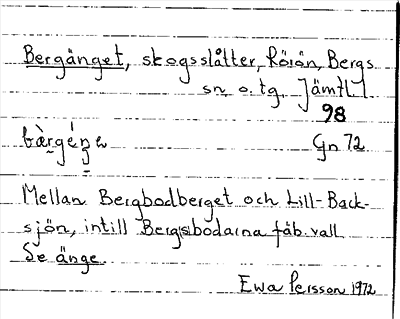 Bergänget, skogsslåtter, Rörön, Bergs
sn o. tg. Jämtl.
98
Gn 72
Mellan Bergbodberget och Lill-Back-
sjön, intill Bergsbodarna fäb.vall
Se änge.
Ewa Persson 1972